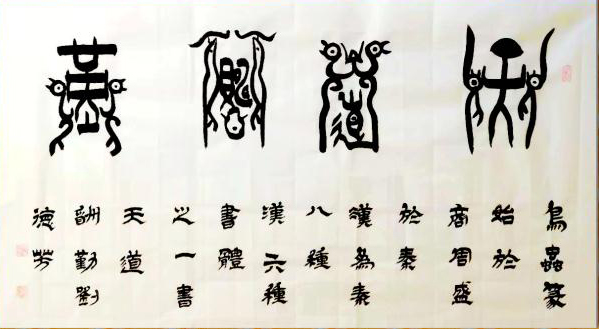 天道酬勤
鳥蟲篆
始於
商周盛
於秦
漢為秦
八種
漢六種
書體
之一書
天道
酬勤劉
德芳